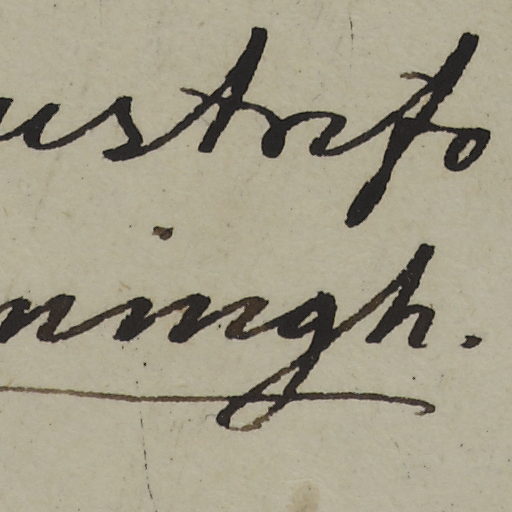 ustrfo
ningh.